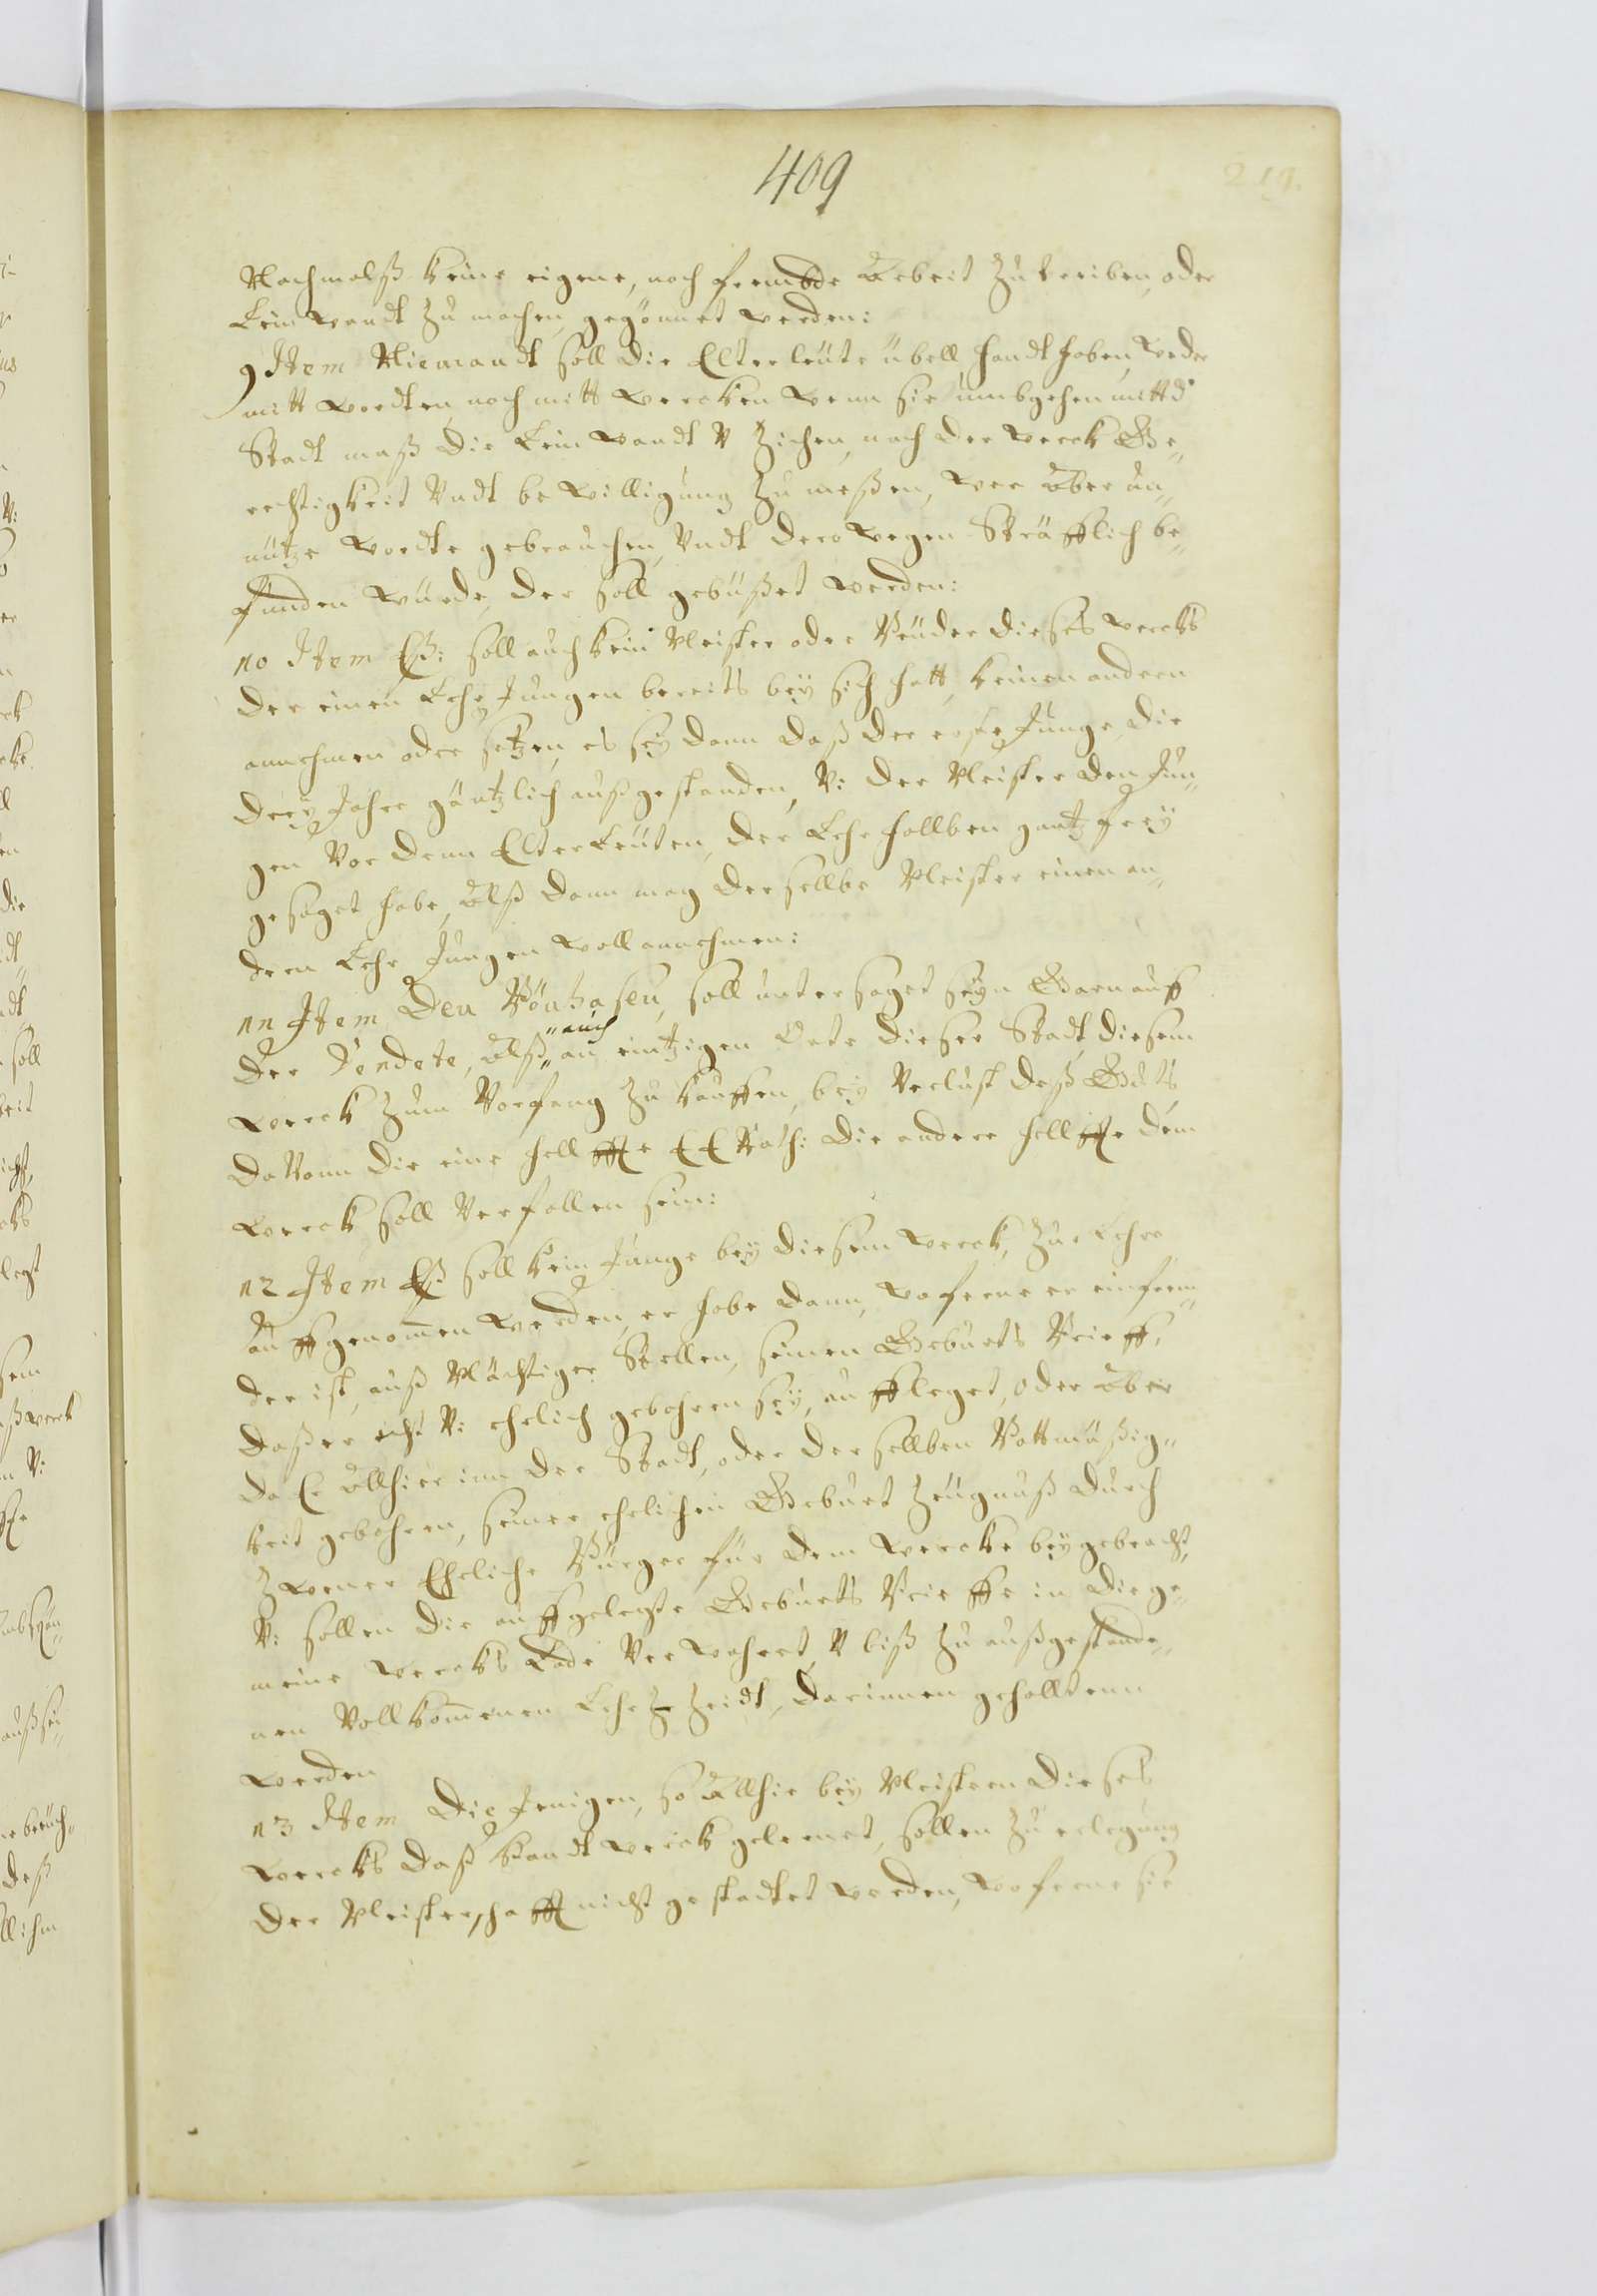 409
219.
Nachmalß keine eigene, noch frembde Arbeit zu treiben, oder
Leinwandt zu machen, gegönnet werden:
9 Item Niemandt soll die Elterleüte übell handthaben, weder
mitt wordten, noch mitt wercken, wenn sie umbgehen mitt d'
Stadt maß die Leinwandt V Ziehen, nach der werck Ge„
rechtigkeit Vndt bewilligung zu meßen, wer aber un„
nütze wordte gebrauchen, Vndt deroWegen Sträfflich be„
funden würde, der soll gebüßet werden:
10 Item Eß: soll auch kein Meister oder Brüder dieses wercks
der einen Lehr Jungen bereits bey sich hatt, keinen andern
annehmen oder setzen, es sey dann daß der erste Junge, die
drey Jahre gäntzlich außgestanden, V: der Meister den Jun„
gen Vor denn ElterLeüten, der Lehr hallben gantz frey
gesaget habe, Alß dann mag dersellbe Meister einen an„
dern Lehr Jungen woll annehmen:
11 Item Den Bönhasen, soll untersaget seyn Garn auff
der Tendete, Alß „auch an eintzigen Orte dieser Stadt, diesem
werck zum Vorfang zu kauffen, bey Verlust deß Gutts
daVonn die eine hellffte EE Rath: die andere hellffte dem
werck soll Verfallen sein:
12 Item Eß soll kein Junge bey diesem werck, zur Lehre
auffgenommen werden, er habe dann, woferne er ein frem„
der ist, auß Mächtiger Stellen, seinen Geburts Brieff,
daß er echt V: ehelich gebohren sey, auffleget, oder aber
da Er allhier inn der Stadt, oder dersellben Bottmäßig„
keit gebohren, seiner ehelichen Geburt Zeügnuß durch
Zweener Eheliche Bürger für dem wercke beygebracht,
V: sollen die auffgelegte Geburts Brieffe in die ge„
meine wercks Lade Verwahret, V biß zu außgestande„
nen Vollkommenen Lehr Zeidt, darinnen gehalltenn
werden
13 Item Die Jenigen, so Allhie bey Meistern dieses
wercks daß Handtwerck gelernet, sollen zu erlegung
der Meisterschafft nicht gestadtet werden, woferne sie